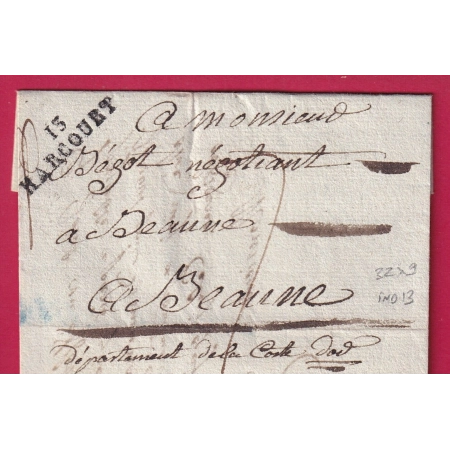 13
HARCOURT
a monsieur
Bégot négotiant
à Beaune
a Beaune
Département de la Coste dor
32x9
ind 13